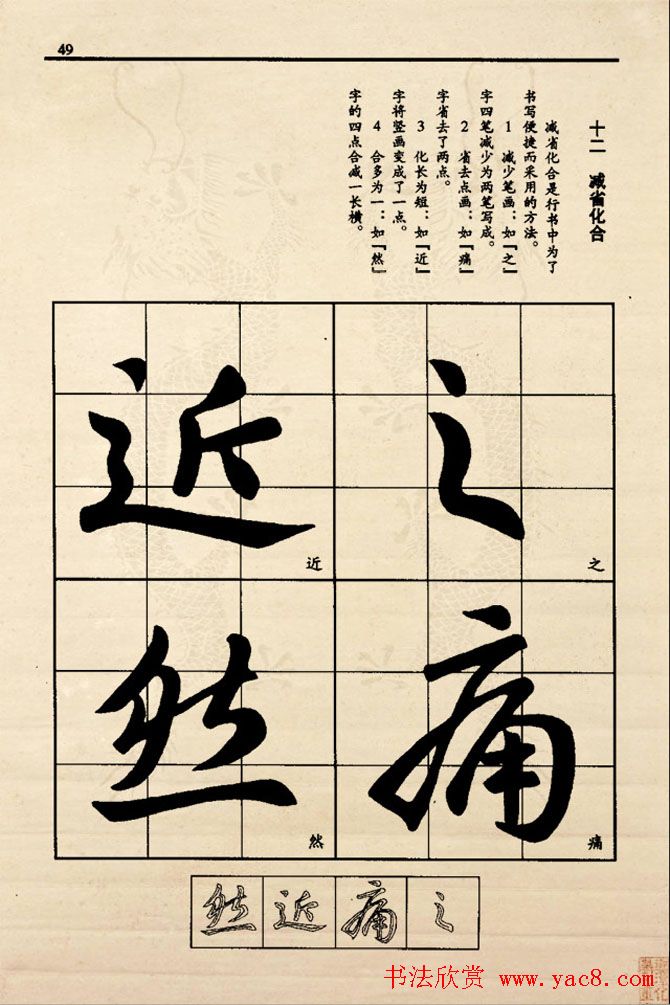 49
十二 减省化合
减省化合是行书中为了
书写便捷而采用的方法。
1 减少笔画：如『之』
字四笔减少为两笔写成。
2 省去点画：如『痛』
字省去了两点。
3 化长为短：如『近』
字将竖画变成了一点。
4 合多为一：如『然』
字的四点合减一长横。
之
之
痛
痛
近
近
然
然
然 近 痛 之
书法欣赏 www.yac8.com